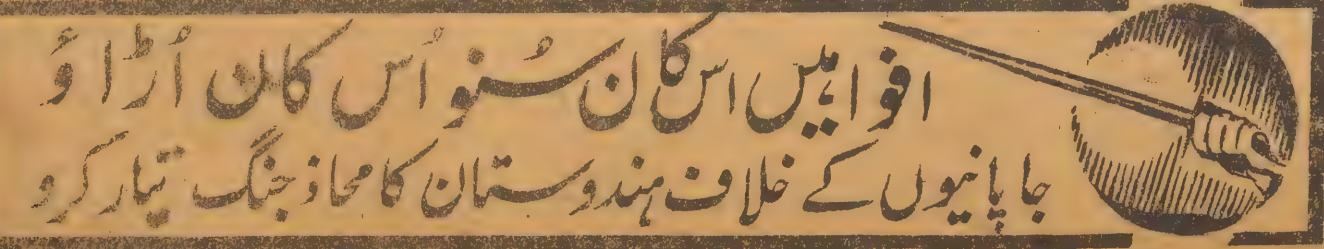 افواہیں اس کان سُنو اُس کان اُڑاؤ
جاپانیوں کے خلاف ہندوستان کا محاذ جنگ تیار کرو